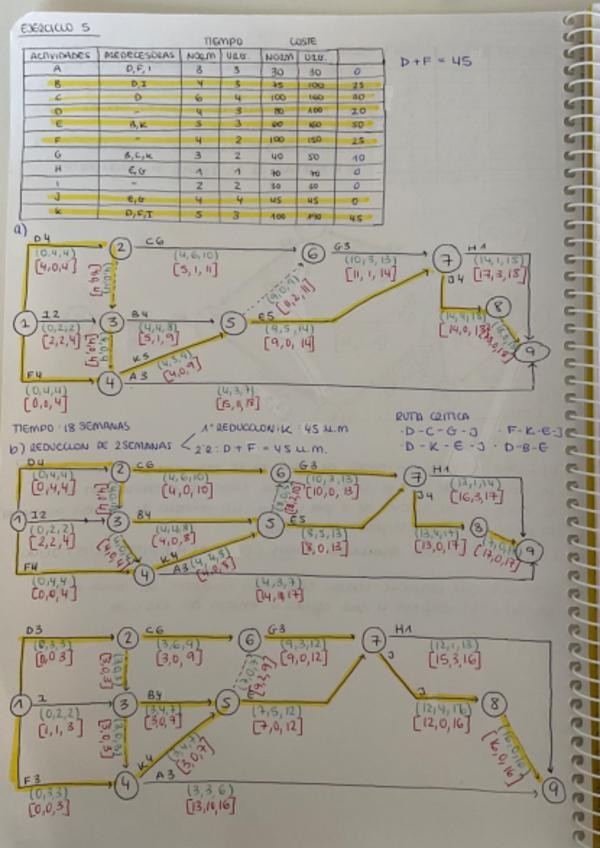 EJERCICIO 5
TIEMPO COSTE
ACTIVIDADES PREDECESORAS NORM URG. NORM URG.
A D,F,I 3 3 30 30 0
B D,I 4 3 75 100 25
C D 6 4 100 160 30
D - 4 3 80 100 20
E B,K 5 3 60 160 50
F - 4 2 100 150 25
G B,C,K 3 2 40 50 10
H E,G 1 1 70 70 0
I - 2 2 30 0
J E,G 4 4 45 45 0
K D,F,I 5 3 100 190 45
D + F = 45
a)
D4 2 C6 6 G3 7 H1
(0,4,4) (4,6,10) (10,3,13) (14,1,15)
[4,0,4] [5,1,11] [11,1,14] [17,3,18]
J4 8
1 I2 3 B4 5 E5
(0,2,2) (4,4,8) (9,5,14)
[2,2,4] [5,1,9] [9,0,14]
K5 9
F4 4 A3
(0,4,4) (4,3,7)
[0,0,4] [15,11,18]
TIEMPO: 18 SEMANAS
1ª REDUCCION: K = 45 u.m
RUTA CRITICA
· D - C - G - J · F - K - E - J
b) REDUCCION DE 2 SEMANAS
2ª: D + F = 45 u.m.
· D - K - E - J · D - B - E
D4 2 C6 6 G3 7 H1
(0,4,4) (4,6,10) (10,3,13) (13,1,14)
[0,4,4] [4,0,10] [10,0,13] [16,3,17]
J4
1 I2 3 B4 5 E5 8
(0,2,2) (4,4,8) (8,5,13) (13,4,17)
[2,2,4] [4,0,8] [8,0,13] [13,0,17]
K4 9
F4 4 A3 (4,4,8)
(0,4,4) [4,0,8] (4,3,7)
[0,0,4]
D3 2 C6 6 G3 7 H1
(0,3,3) (3,6,9) (9,3,12) (12,1,13)
[0,0,3] [3,0,9] [9,0,12] [15,3,16]
J
1 I 3 B4 5 J 8
(0,2,2) (3,4,7) (7,5,12) (12,4,16)
[1,1,3] [3,0,7] [7,0,12] [12,0,16]
K4
F3 4 A3 9
(0,3,3) (3,3,6)
[0,0,3] [13,10,16]